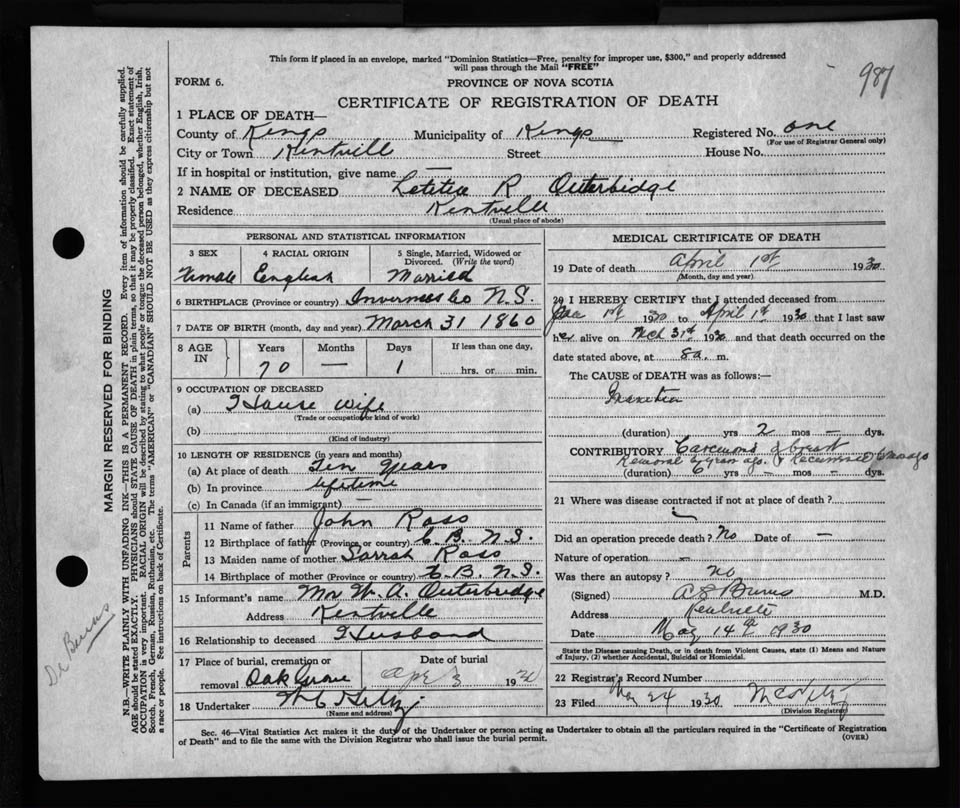 This form if placed in an envelope, marked "Dominion Statistics—Free, penalty for improper use, $300," and properly addressed
will pass through the Mail "FREE"
987
FORM 6. PROVINCE OF NOVA SCOTIA
CERTIFICATE OF REGISTRATION OF DEATH
1 PLACE OF DEATH—
County of Kings Municipality of Kings Registered No. one
(For use of Registrar General only)
City or Town Kentvill Street House No.
If in hospital or institution, give name —
2 NAME OF DECEASED Letitia R Outerbidge
Residence Kentville
(Usual place of abode)
PERSONAL AND STATISTICAL INFORMATION
3 SEX 4 RACIAL ORIGIN 5 Single, Married, Widowed or Divorced. (Write the word)
Female English Married
6 BIRTHPLACE (Province or country) Inverness Co N.S.
7 DATE OF BIRTH (month, day and year) March 31 1860
8 AGE IN Years Months Days If less than one day,
70 — 1 hrs. or min.
9 OCCUPATION OF DECEASED
(a) House wife
(Trade or occupation or kind of work)
(b)
(Kind of industry)
10 LENGTH OF RESIDENCE (in years and months)
(a) At place of death Ten years
(b) In province lifetime
(c) In Canada (if an immigrant) —
Parents
11 Name of father John Ross
12 Birthplace of father (Province or country) C. B. N.S.
13 Maiden name of mother Sarrah Ross
14 Birthplace of mother (Province or country) C. B. N.S.
15 Informant's name Mr W. A. Outerbridge
Address Kentville
16 Relationship to deceased Husband
17 Place of burial, cremation or Date of burial
removal Oak Grove Apr 3 1930
18 Undertaker
(Name and address)
MEDICAL CERTIFICATE OF DEATH
19 Date of death April 1st 1930
(Month, day and year)
20 I HEREBY CERTIFY that I attended deceased from
Jan 1st 1930 to April 1st 1930 that I last saw
her alive on Mch 31st 1930 and that death occurred on the
date stated above, at 8 a. m.
The CAUSE of DEATH was as follows:—
Inanition
(duration) yrs 2 mos — dys.
CONTRIBUTORY Carcinoma of breast
Removal 6 years ago. Recurrence 6 mos ago
(duration) 6 yrs — mos — dys.
21 Where was disease contracted if not at place of death?
Did an operation precede death? No Date of —
Nature of operation —
Was there an autopsy? no
(Signed) A S Burns M.D.
Address Kentville
Date May 14th 1930
State the Disease causing Death, or in death from Violent Causes, state (1) Means and Nature
of Injury, (2) whether Accidental, Suicidal or Homicidal.
22 Registrar's Record Number
23 Filed May 24 1930
(Division Registrar)
Sec. 46—Vital Statistics Act makes it the duty of the Undertaker or person acting as Undertaker to obtain all the particulars required in the "Certificate of Registration
of Death" and to file the same with the Division Registrar who shall issue the burial permit. (OVER)
MARGIN RESERVED FOR BINDING
N.B.—WRITE PLAINLY WITH UNFADING INK—THIS IS A PERMANENT RECORD. Every item of information should be carefully supplied.
AGE should be stated EXACTLY. PHYSICIANS should STATE CAUSE OF DEATH in plain terms, so that it may be properly classified. Exact statement of
OCCUPATION is very important. RACIAL ORIGIN will be described by stating to what people or tongue the deceased person belonged, whether English, Irish,
Scotch, French, German, Russian, Ruthenian, etc. The terms "AMERICAN" or "CANADIAN" SHOULD NOT BE USED as they express citizenship but not
a race or people. See instructions on back of Certificate.
Dr Burns